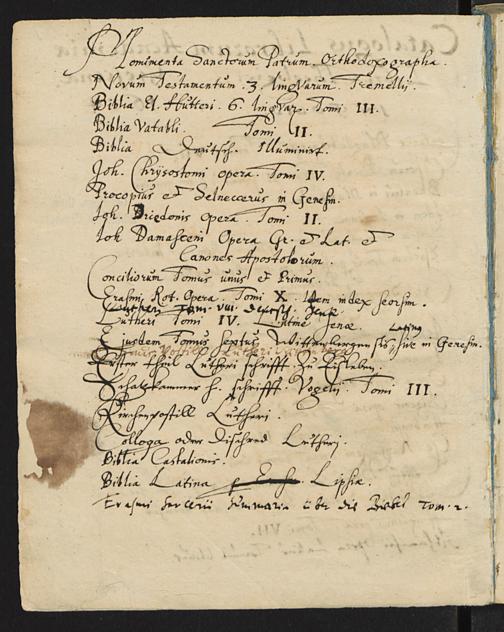 Monimenta Sanctorum Patrum Orthodoxographa.
Novum Testamentum. 3. linguarum. Tremellij.
Biblia El. Hutteri. 6. lingvar. Tomi III.
Biblia Vatabli. Tomi II.
Biblia Deutsch. Illuminirt.
Joh. Chrÿsostomi opera. Tomi IV.
Procopius et Selneccerus in Genesin.
Joh. Driedonis opera. Tomi II.
Joh Damasceni Opera Gr. et Lat. et
Canones Apostolorum.
Conciliorum Tomus unus et Primus.
Erasmi Rot. Opera. Tomi X. Idem index seorsim.
Lutheri Tom. VIII. deutsch. Jenae
Lutheri Tomi IV. Latinè Jenae.
Ejusdem Tomus Sextus, Wittenbergensis, Latinus sive in Genesin.
Erster theil Lutheri schrifft. Zu Eisleben.
Schatzkammer H. Schrifft. Vogelij. Tomi III.
Kirchenpostill Lutheri.
Colloqa oder Tischred Lutherj.
Biblia Castalionis.
Biblia Latina Lipsiæ.
Erasmi Sarcerii Summaria über die Bibel Tom. 2.